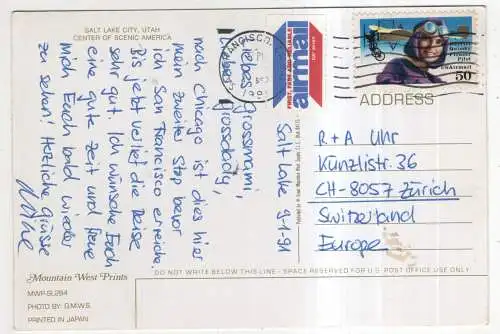 SALT LAKE CITY, UTAH
CENTER OF SCENIC AMERICA
Salt Lake 9-1-91
Liebes Grossmami,
Liebes Grossdady,
nach Chicago ist dies hier
mein zweiter Stop bevor
ich San Francisco erreiche.
Bis jetzt verlief die Reise
sehr gut. Ich wünsche Euch
eine gute Zeit und freue
mich Euch bald wieder
zu sehen! Herzliche Grüsse
FIRST, FAST AND RELIABLE
airmail
50
USAirmail
Pilot
ADDRESS
R + A Uhr
Künzlistr. 36
CH-8057 Zürich
Switzerland
Europe
Mountain West Prints
DO NOT WRITE BELOW THIS LINE - SPACE RESERVED FOR U.S. POST OFFICE USE ONLY
MWP-SL284
PHOTO BY: G.M.W.S.
PRINTED IN JAPAN